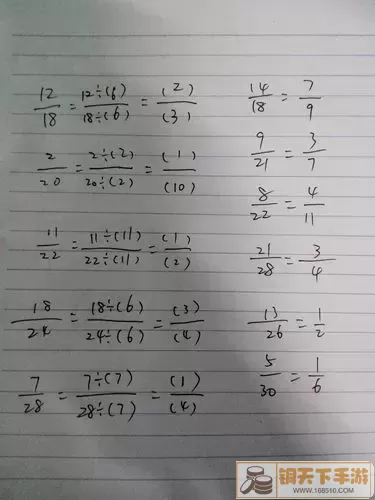 12/18 = 12÷(6)/18÷(6) = (2)/(3)
2/20 = 2÷(2)/20÷(2) = (1)/(10)
11/22 = 11÷(11)/22÷(11) = (1)/(2)
18/24 = 18÷(6)/24÷(6) = (3)/(4)
7/28 = 7÷(7)/28÷(7) = (1)/(4)
14/18 = 7/9
9/21 = 3/7
8/22 = 4/11
21/28 = 3/4
13/26 = 1/2
5/30 = 1/6
铜天下手游
www.168510.com